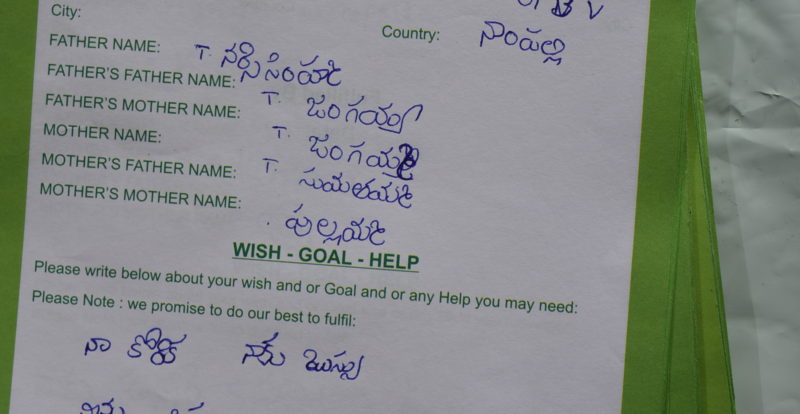 City:
Country: నాంపల్లి
FATHER NAME: T. నర్సిసింహ
FATHER'S FATHER NAME: T. జంగయ్య
FATHER'S MOTHER NAME: T. జంగయ్య
MOTHER NAME: T.
MOTHER'S FATHER NAME:
MOTHER'S MOTHER NAME:
WISH - GOAL - HELP
Please write below about your wish and or Goal and or any Help you may need:
Please Note : we promise to do our best to fulfil:
నా కోరిక నాకు